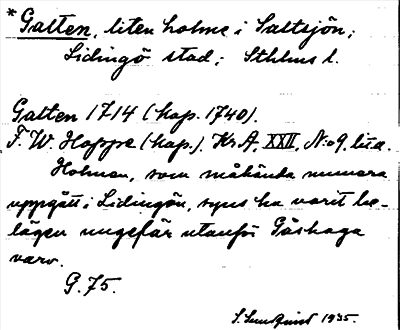 *Galten, liten holme i Saltsjön;
Lidingö stad; Sthlms l.
Galten 1714 (kop. 1740).
F. W. Hoppe (kop.). Kr A, XXII, N:o 9 litt a.
Holmen, som måhända numera
uppgått i Lidingön, synes ha varit be-
lägen ungefär utanför Gåshaga
varv.
G. 75.
S. Sundquist 1935.